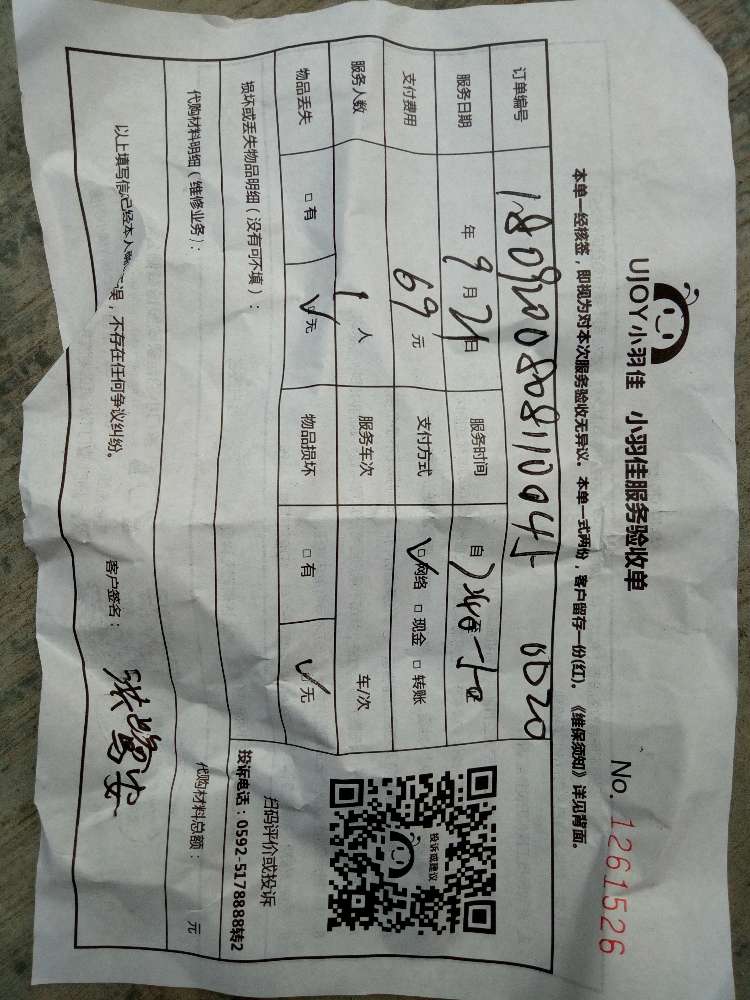 UJOY小羽佳 小羽佳服务验收单
No. 1261526
本单一经核签，即视为对本次服务验收无异议。本单一式两份，客户留存一份(红)。《维保须知》详见背面。
订单编号
服务日期 年 9 月 21 日 服务时间 自 至
支付费用 69 元 支付方式 ☑网络 □现金 □转账
服务人数 1 人 服务车次 车/次
物品丢失 □有 ☑无 物品损坏 □有 ☑无
损坏或丢失物品明细（没有可不填）：
投诉或建议
扫码评价或投诉
投诉电话：0592-5178888转2
代购材料明细（维修业务）： 代购材料总额： 元
以上填写信息已经本人 误，不存在任何争议纠纷。 客户签名：